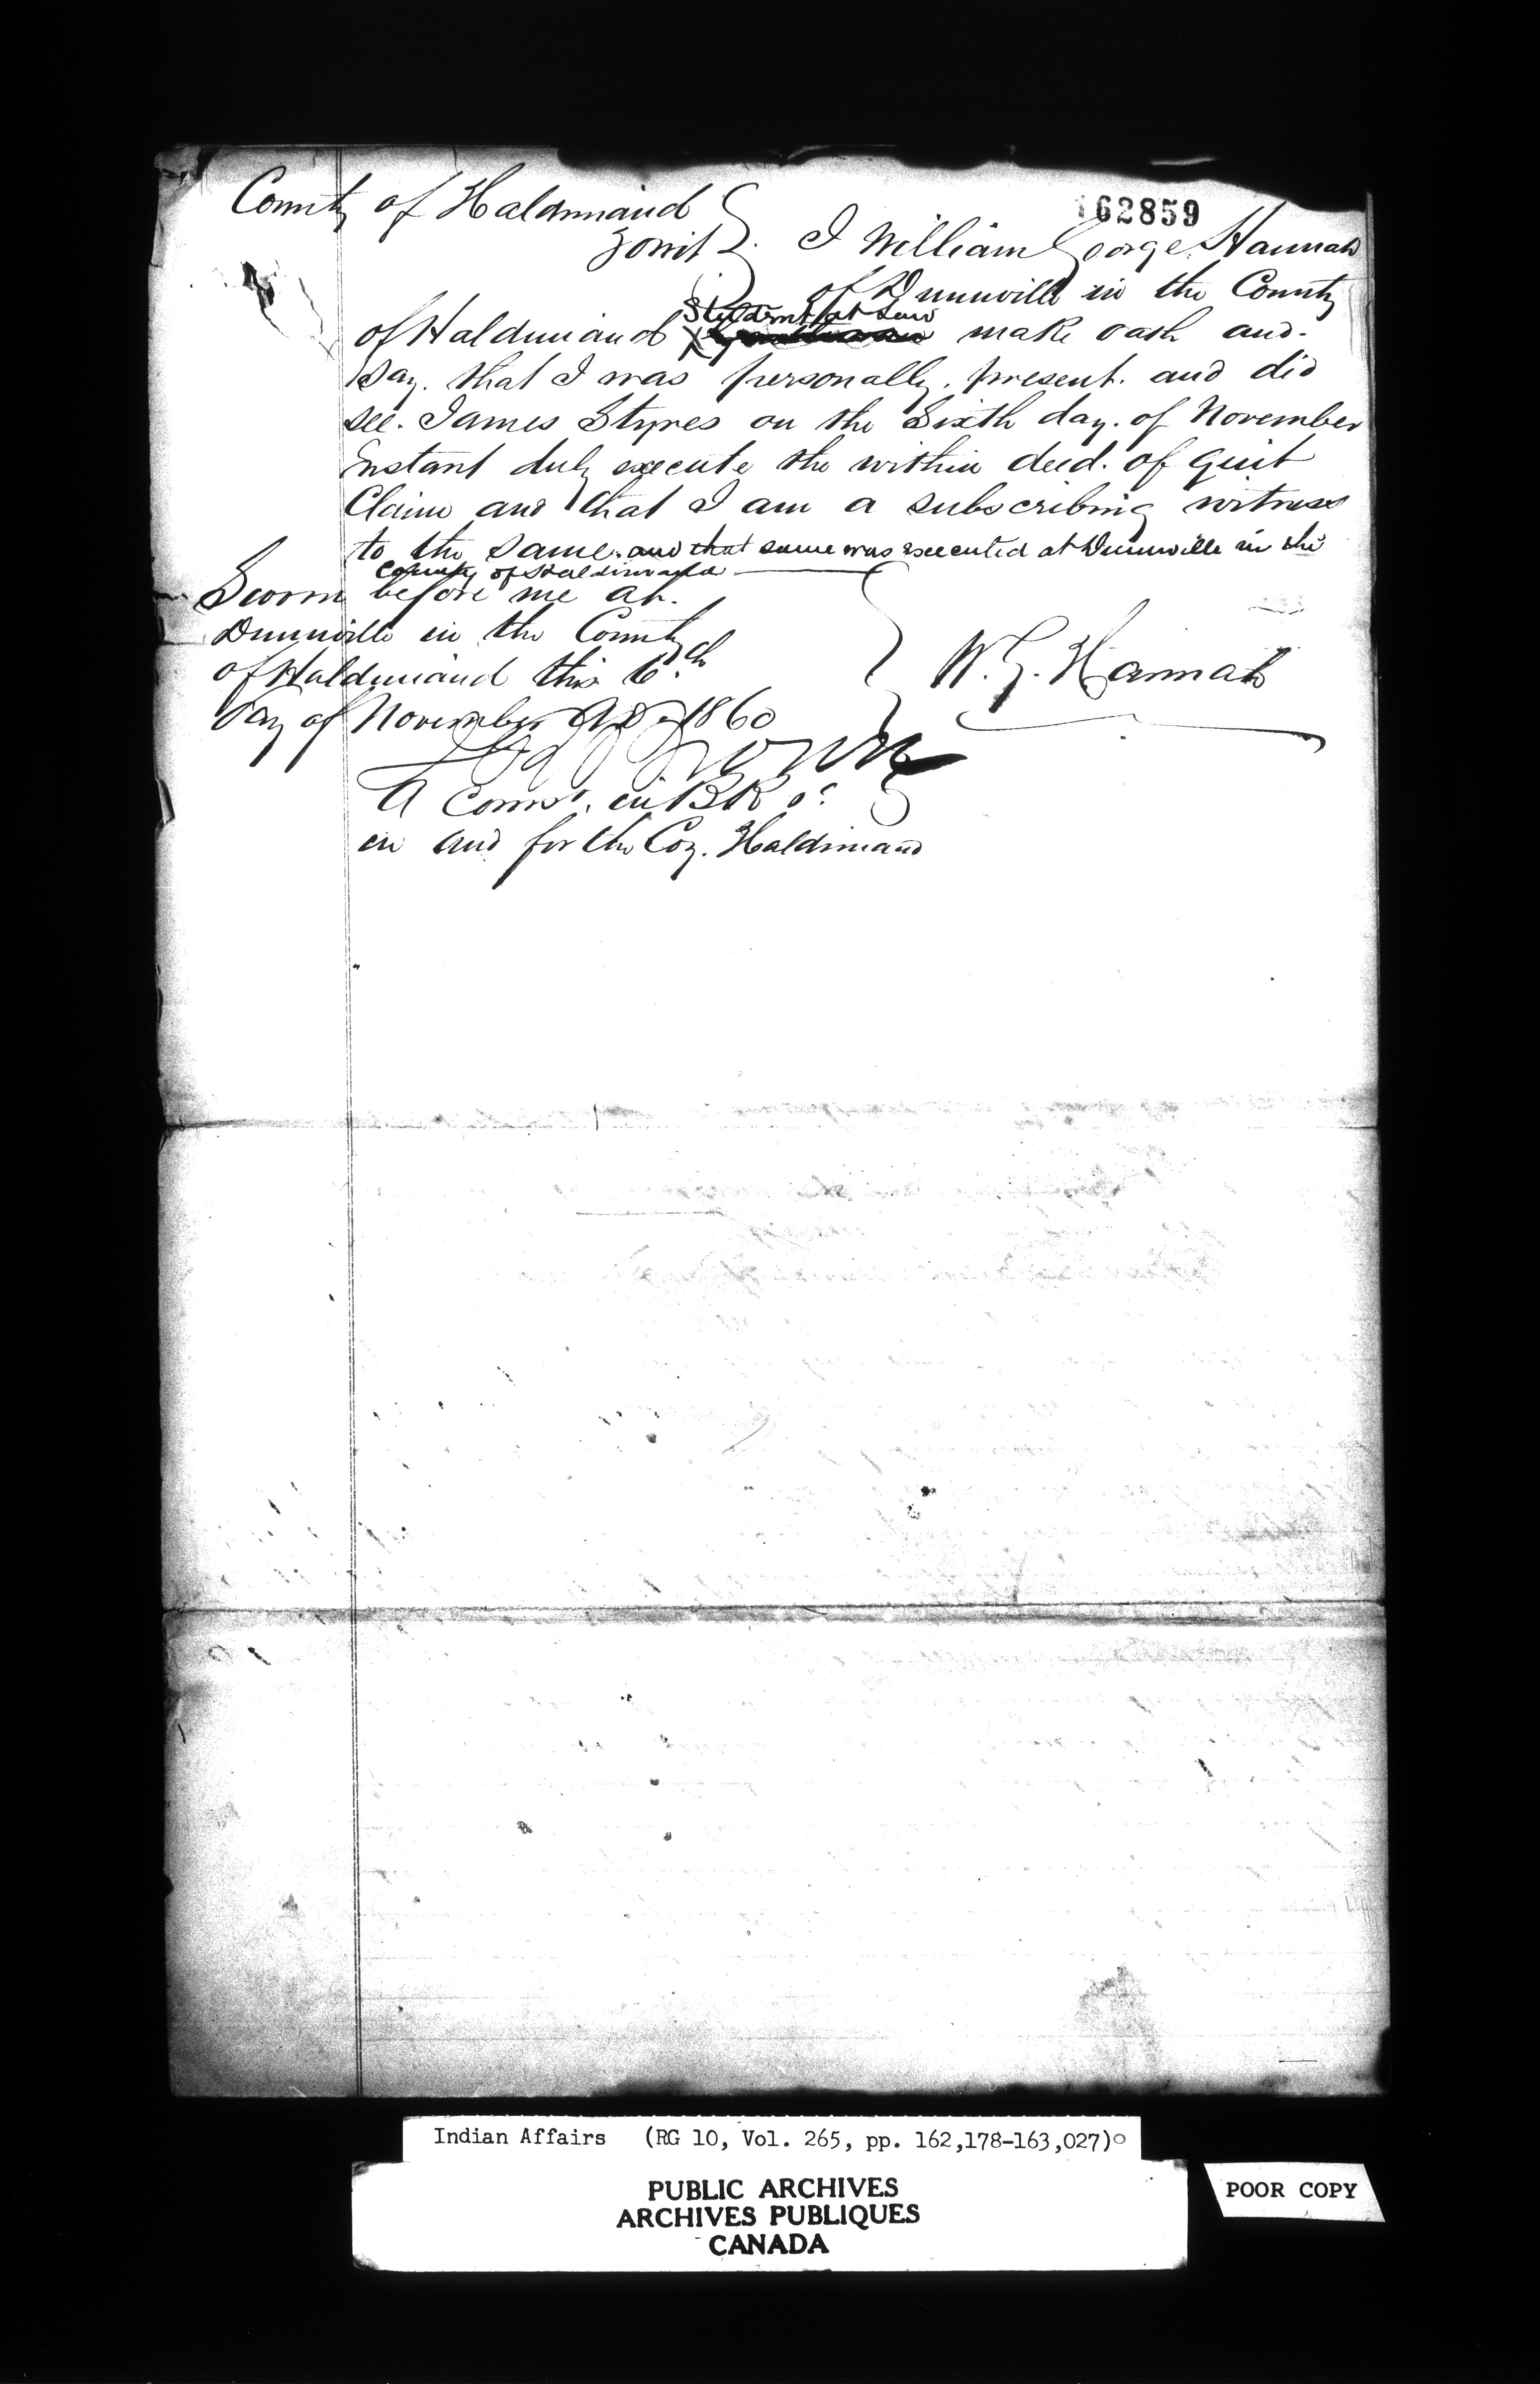 162859
County of Haldimand
Towit } I William George Hannah
of Dunnville in the County
Student at Law
of Haldimand X make oath and
Say. that I was personally. present. and did
see. James Styres on the Sixth day. of November
Instant duly execute the within deed. of quit
Claim and that I am a subscribing witness
to the Same. and that same was executed at Dunnville in the
County of Haldimand
Sworn before me at.
Dunnville in the County
of Haldimand this 6.th
day of November AD 1860
W. G. Hannah
Brown
A Commr. in BR &c
in and for the Coy. Haldimand
Indian Affairs (RG 10, Vol. 265, pp. 162,178-163,027)
PUBLIC ARCHIVES
ARCHIVES PUBLIQUES
CANADA
POOR COPY